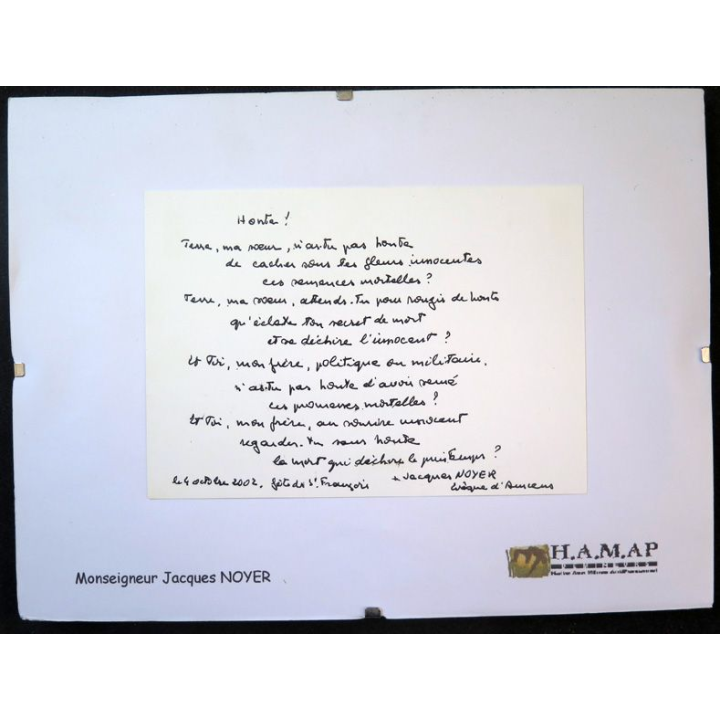 Honte !
Terre, ma sœur, n'as-tu pas honte
de cacher sous les fleurs innocentes
ces semences mortelles ?
Terre, ma sœur, attends-tu pour rougir de honte
qu'éclate ton secret de mort
et se déchire l'innocent ?
Et Toi, mon frère, politique ou militaire,
n'as-tu pas honte d'avoir semé
ces promesses mortelles ?
Et Toi, mon frère, au sourire innocent
regardes-tu sans honte
la mort qui déchire le printemps ?
le 4 octobre 2002, fête de St. François
+ Jacques NOYER
évêque d'Amiens
Monseigneur Jacques NOYER
H.A.M.AP